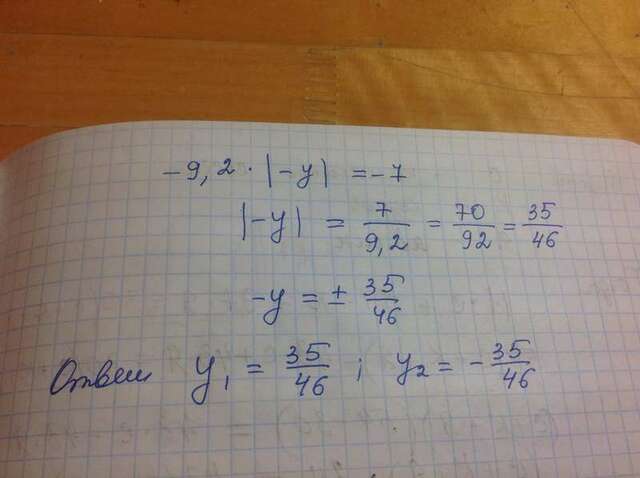 -9,2 · |-y| = -7
|-y| = 7/9,2 = 70/92 = 35/46
-y = ± 35/46
Ответ y₁ = 35/46 ; y₂ = -35/46